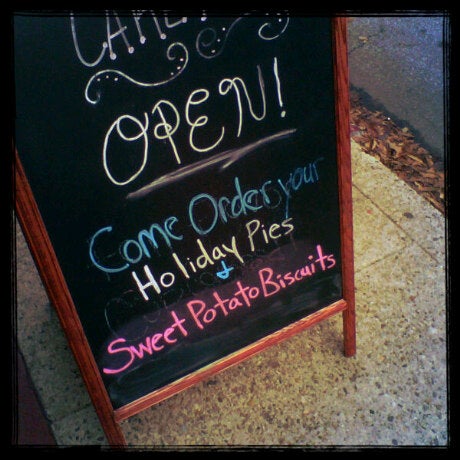 OPEN!
Come Order your
Holiday Pies
&
Sweet Potato Biscuits